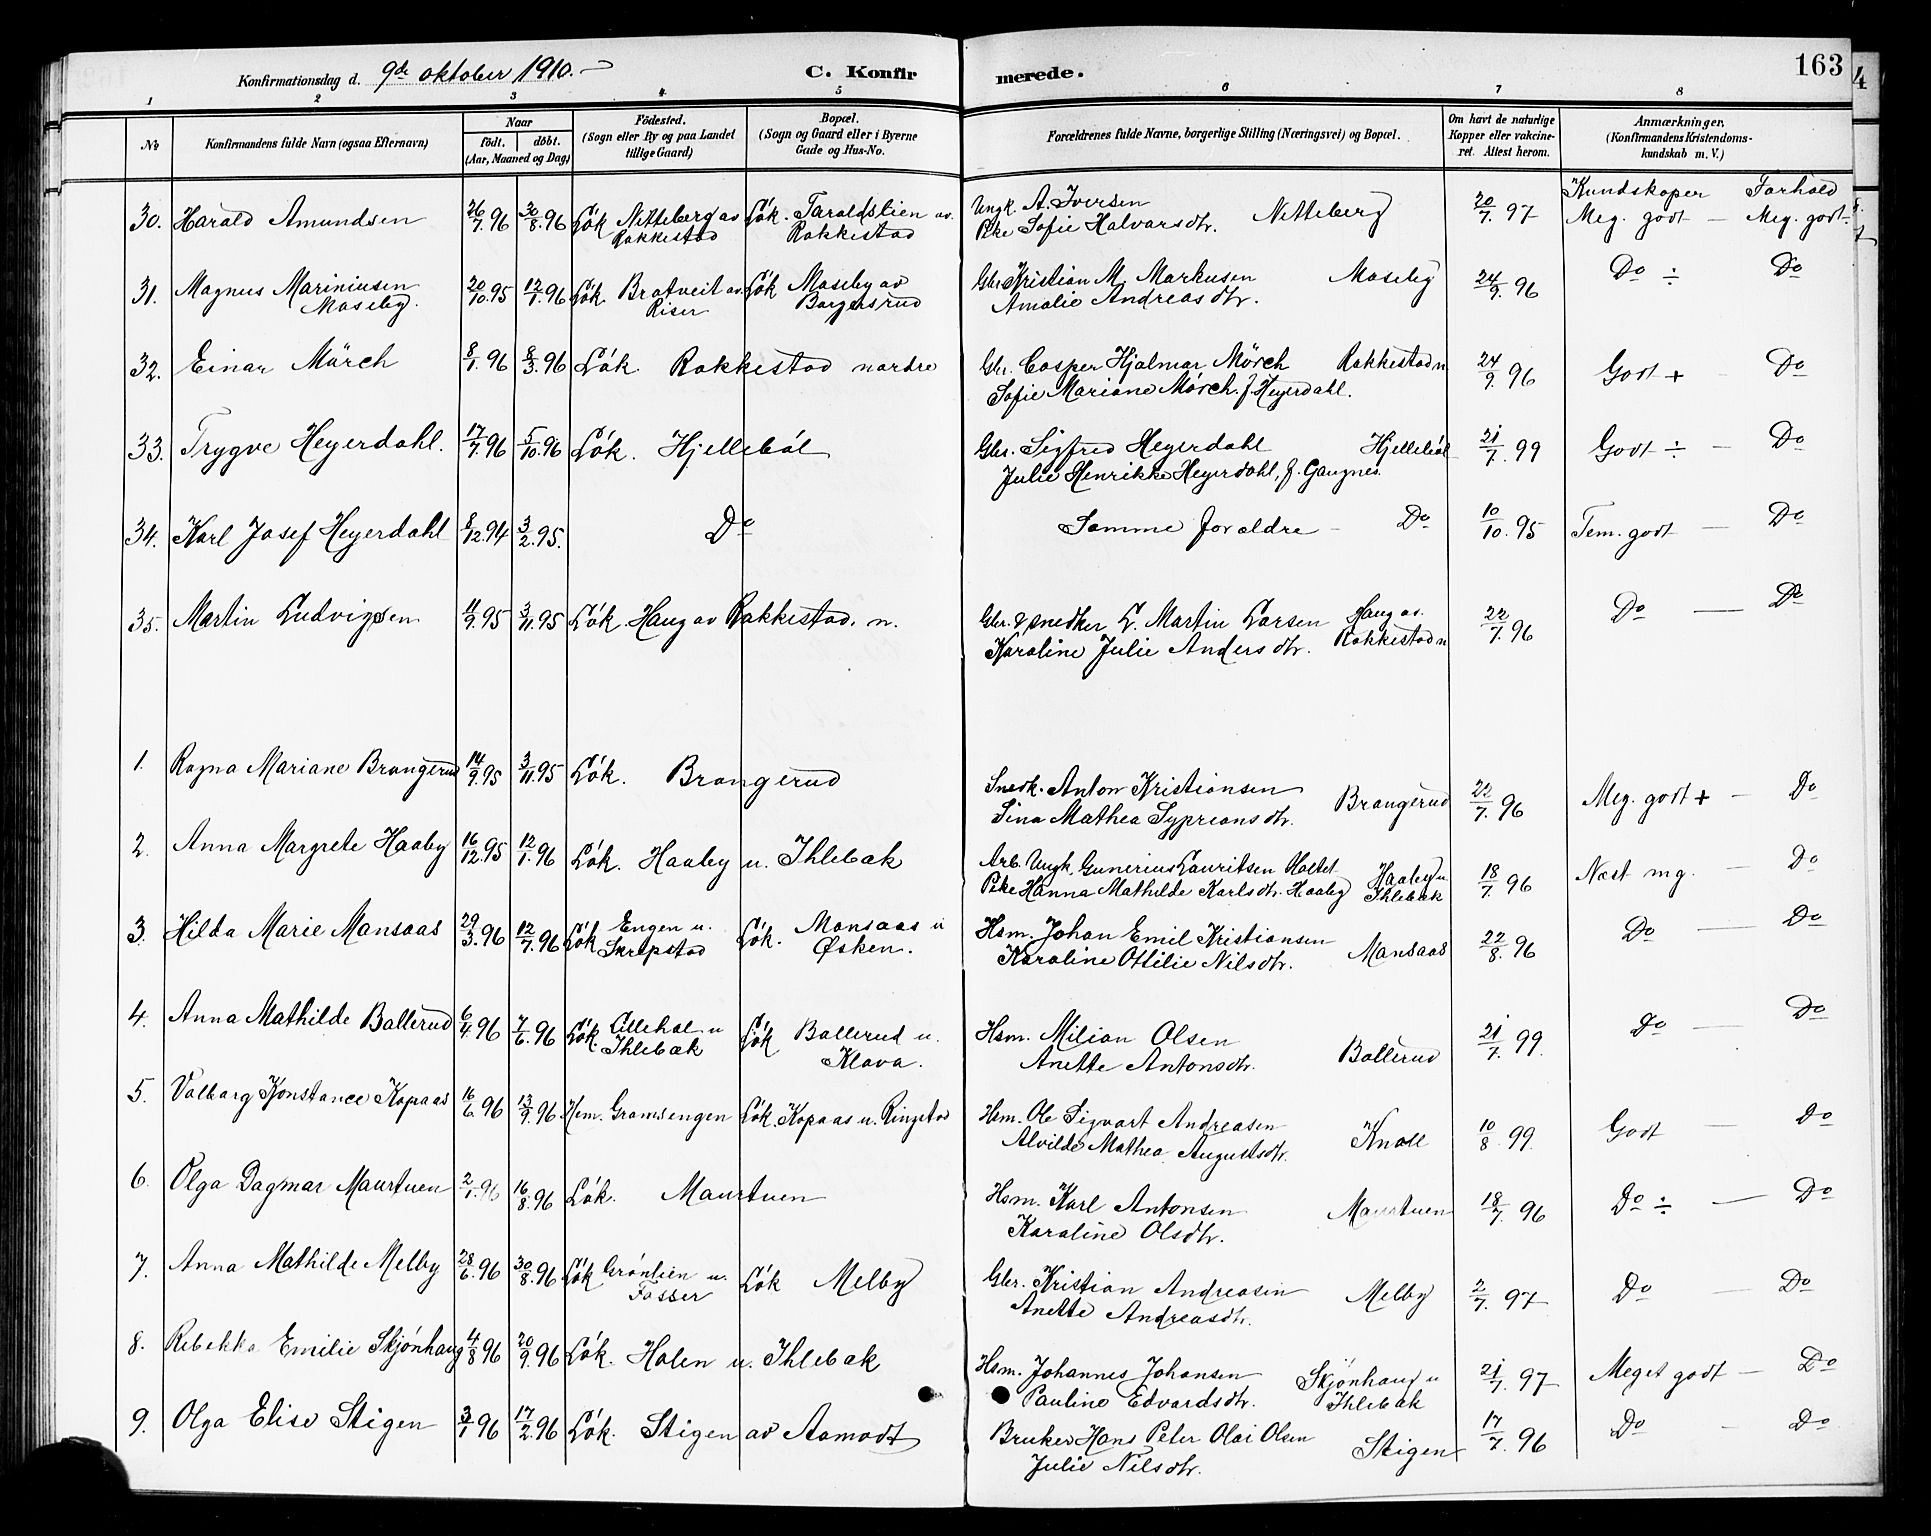 163
Konfirmationsdag d. 9de oktober 1910. C. Konfirmerede.
1 2 3 4 5 6 7 8
No
Konfirmandens fulde Navn (ogsaa Efternavn)
Naar
födt. döbt.
(Aar, Maaned og Dag)
Födested.
(Sogn eller By og paa Landet
tillige Gaard)
Bopæl.
(Sogn og Gaard eller i Byerne
Gade og Hus-No.
Forældrenes fulde Navne, borgerlige Stilling (Næringsvei) og Bopæl.
Om havt de naturlige
Kopper eller vakcine-
ret. Attest herom.
Anmærkninger.
(Konfirmandens Kristendoms-
kundskab m. V.)
Kundskaper Forhold
30. Harald Amundsen 26/7.96 30/8.96 Løk Netteberg av Rakkestad Løk. Taraldslien av. Rakkestad Ungk. A. Iversen Pike Sofie Halvarsdtr. Netteberg 20/7.97 Meg. godt — Meg. godt
31. Magnus Mariniusen Moseby. 20/10.95 12/1.96 Løk. Bratveit av. Riser Løk Moseby av Borgersrud Gbr. Kristian M. Markusen Amalie Andreasdtr. Moseby 24/9.96 Do ÷ Do
32. Einar Mörch 8/1.96 8/3.96 Løk. Rakkestad nordre Gbr. Casper Hjalmar Mörch Sofie Mariane Mörch f. Heyerdahl. Rakkestad n 24/9.96 Godt + Do
33. Trygve Heyerdahl. 17/7.96 5/10.96 Løk. Hjellebøl Gbr. Sigfred Heyerdahl Julie Henrikke Heyerdahl, f. Gaugnes. Hjellebøl 21/7.99 Godt ÷ — Do
34. Karl Josef Heyerdahl 8/12.94 3/2.95. Do Samme foraldre — Do 10/10.95 Tem. godt — Do
35. Martin Ludvigsen 11/9.95 3/11.95 Løk. Haug av Rakkestad. n. Gbr. & snedker L. Martin Larsen Karoline Julie Andersdtr. Haug av. Rakkestad n 22/7.96 Do — Do
1. Ragna Mariane Brangerud 14/9.95 3/11.95 Løk. Brangerud Snedk. Anton Kristiansen Sina Mathea Syprians dtr. Brangerud 22/7.96 Meg. godt + — Do
2. Anna Margrete Haaby 16/12.95 12/1.96 Løk. Haaby u. Ihlebæk Arb. Ungk. Gunerius Lauritsen Holtet Pike Hanna Mathilde Karlsdtr. Haaby Haaby u Ihlebæk 18/7.96 Næst mg. — Do
3. Hilda Marie Mansaas 29/3.96 12/7.96 Løk Engen u. Skrepstad Løk. Mansaas u Øsken. Hsm. Johan Emil Kristiansen Karoline Otilie Nilsdtr. Mansaas 22/8.96 Do — Do
4. Anna Mathilde Ballerud 6/4.96 7/6.96 Løk. Lillehol u Ihlebæk Løk Ballerud u. Klava. Hsm. Milian Olsen Anette Antonsdtr. Ballerud 21/7.99. Do — Do
5. Valborg Konstance Kopaas 16/6.96 13/9.96 Hem. Gramsengen Løk. Kopaas u. Ringstad Hsm. Ole Sigvart Andreasen Alvilde Mathea Augustsdtr. Knoll 10/8.99. Godt — Do
6. Olga Dagmar Maurtuen 2/1.96 16/8.96 Løk. Maurtuen Hsm. Karl Antonsen Karoline Olsdtr. Maurtuen 18/7.96 Do ÷ — Do
7. Anna Mathilde Melby 28/6.96 30/8.96 Løk Grønlien u. Fosser Løk Melby Gbr. Kristian Andreasen Anette Andreasdtr. Melby 2/7.97 Do — Do
8. Rebekka Emilie Skjønhaug 4/8 96 20/9.96 Løk. Holen u. Ihlebæk Hsm. Johannes Johansen Pauline Edvardsdtr. Skjønhaug u Ihlebæk 21/7.97 Meget godt — Do
9. Olga Elise Stigen 3/1 96 17/2.96 Løk. Stigen av Aamodt Bruker Hans Peter Olai Olsen Julie Nilsdtr. Stigen 17/7.96 Do — Do